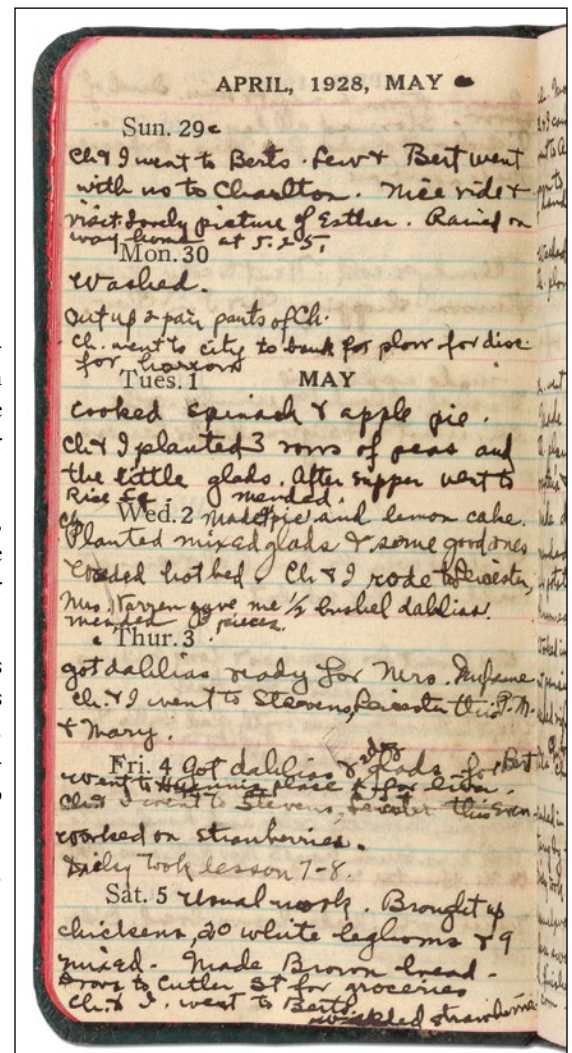 APRIL, 1928, MAY
Sun. 29
Ch & I went to Berts. Lew & Bert went
with us to Charlton. Nice ride &
visit. Lovely picture of Esther. Rained on
way home at 5.25.
Mon. 30
Washed.
Cut up 2 pair pants of Ch.
Ch. went to city to bank for plow for disc
for harrow
Tues. 1 MAY
Cooked spinach & apple pie.
Ch & I planted 3 rows of peas and
the little glads. After supper went to
mended.
Ch
Wed. 2 Made pie and lemon cake.
Planted mixed glads & some good ones
Weeded hot bed. Ch & I rode to Leicester,
Mrs. Warren gave me 1/2 bushel dahlias.
mended pieces.
Thur. 3
got dahlias ready for Mrs.
Ch. & I went to Stevens, Leicester this P.M.
& Mary.
Fri. 4 Got dahlias & glads for Bert
went to place for
Ch & I went to Stevens, Leicester this Even
worked on strawberries.
took lesson 7-8.
Sat. 5 Usual work. Brought up
chickens, 20 white leghorns & 9
mixed. Made Brown bread.
Drove to Cutler St for groceries
Ch. & I. went to Berts
strawberries